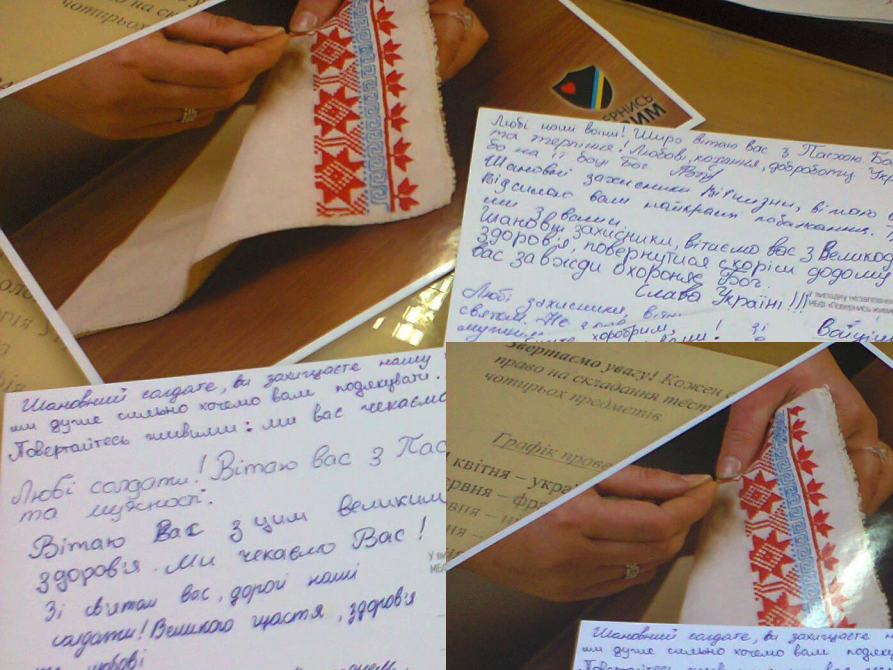 на с
чотирьох
ЕРНИСЬ
ИМ
Любі наші воїни! Щиро вітаю вас з Пасхою. Ба
та терпіння! Любові, кохання, добробуту Укр
бо на її боці Бог
Шановні захисники Вітчизни, вітаю
Відсилаю вам найкращі побажання.
ми з вами.
Шановні захисники, вітаємо вас з Великод
здоров'я, повернутися скоріш додому
вас завжди охороняє Бог.
Слава Україні!!!
Любі захисники, віта
святом. Не
хоробрим,
У випадку незаповне
МБФ «Повернись живи
Войці
Шановний солдате, ви захищаєте нашу
ми дуже сильно хочемо вам подякувати.
Повертайтесь живими: ми вас чекаємо
Любі солдати! Вітаю вас з Пас
та мужності.
Вітаю Вас з цим великим
здоров'я. Ми чекаємо Вас!
У ви
МБФ
Зі святом вас, дорогі наші
солдати! Великого щастя, здоров'я
любові
Звертаємо увагу! Кожен
право на складання тесті
чотирьох предметів.
Графік прове
квітня – укра
ервня – фра
вня – н
ня –
Шановний солдате, ви захищаєте наш
ми дуже сильно хочемо вам подяк